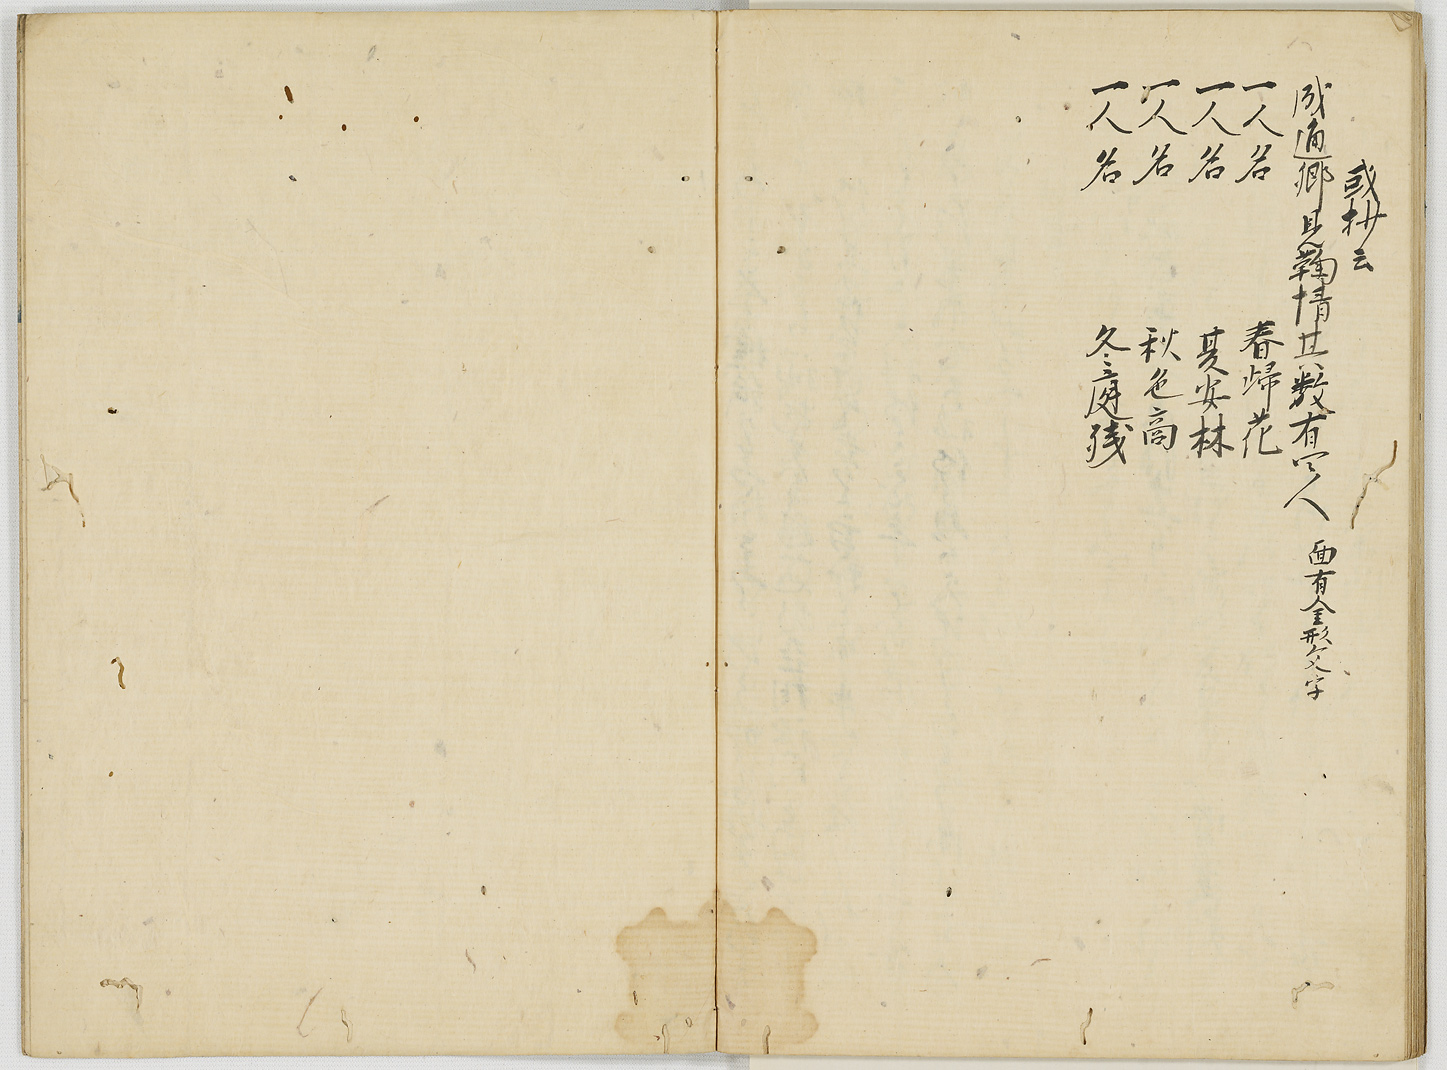 或抄云
成通卿見鞠情其数有四人 面有金形文字
一人名 春帰花
一人名 夏安林
一人名 秋色商
一人名 冬庭残